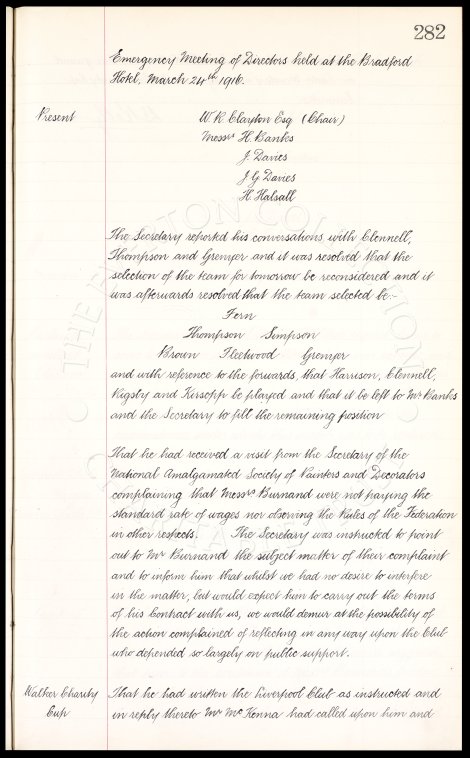 282
Emergency Meeting of Directors held at the Bradford
Hotel, March 24th 1916.
Present
W. R. Clayton Esq (Chair)
Messrs H. Banks
J. Davies
J. G. Davies
H. Halsall
The Secretary reported his conversations with Clennell,
Thompson and Grenyer and it was resolved that the
selection of the team for tomorrow be reconsidered and it
was afterwards resolved that the team selected be:-
Fern
Thompson Simpson
Brown Fleetwood Grenyer
and with reference to the forwards, that Harrison, Clennell,
Rigsby and Kirsopp be played and that it be left to Mr Banks
and the Secretary to fill the remaining position
That he had received a visit from the Secretary of the
National Amalgamated Society of Painters and Decorators
complaining that Messrs Burnand were not paying the
standard rate of wages nor observing the Rules of the Federation
in other respects. The Secretary was instructed to point
out to Mr Burnand the subject matter of their complaint
and to inform him that whilst we had no desire to interfere
in the matter, but would expect him to carry out the terms
of his Contract with us, we would demur at the possibility of
the action complained of reflecting in any way upon the Club
who depended so largely on public support.
Walker Charity
Cup
That he had written the Liverpool Club as instructed and
in reply thereto Mr McKenna had called upon him and